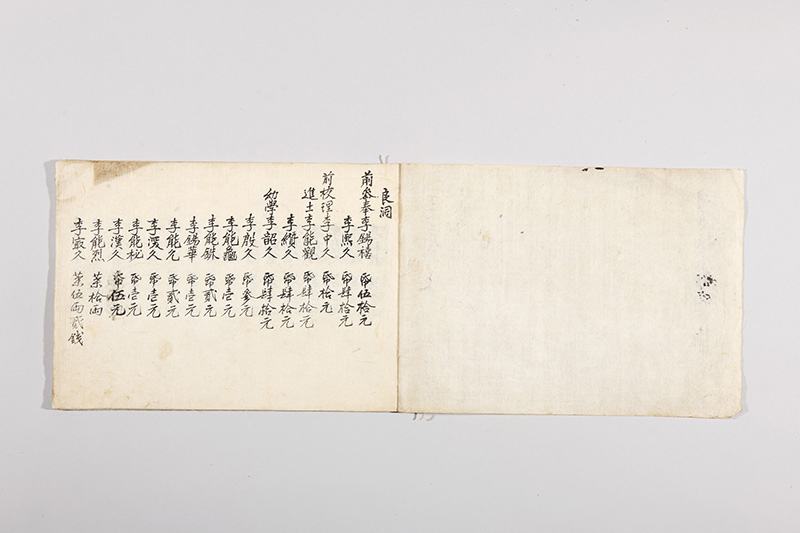 良洞
前參奉李錫禧 幣伍拾元
李熙久 幣肆拾元
前校理李中久 幣拾元
進士李能觀 幣肆拾元
李纘久 幣肆拾元
幼學李韶久 幣肆拾元
李殷久 幣參元
李能 幣壹元
李能銖 幣貳元
李錫華 幣壹元
李能允 幣貳元
李浚久 幣壹元
李能 幣壹元
李漢久 幣伍元
李能烈 葉拾兩
李寂久 葉伍兩貳錢